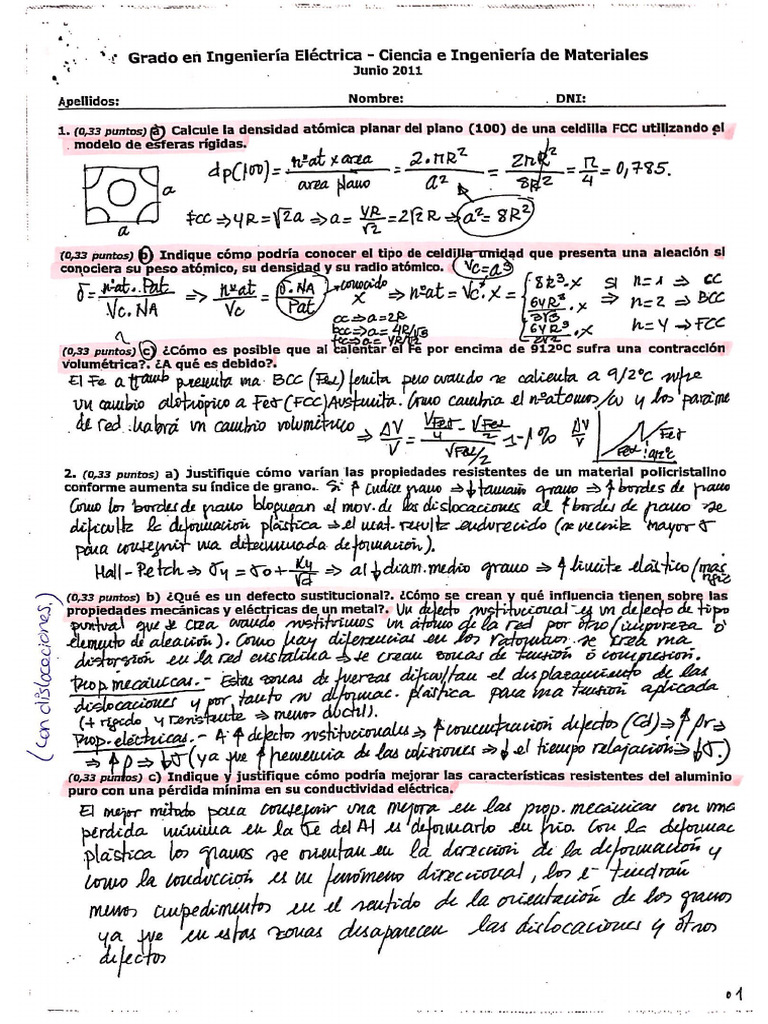 Grado en Ingeniería Eléctrica - Ciencia e Ingeniería de Materiales
Junio 2011
Apellidos: Nombre: DNI:
1. (0,33 puntos) a) Calcule la densidad atómica planar del plano (100) de una celdilla FCC utilizando el
modelo de esferas rígidas.
dp(100) = nºat x area / area plano = 2·πR² / a² = 2πR² / 8R² = π/4 = 0,785.
a
a
FCC => 4R = √2a => a = 4R/√2 = 2√2 R => a² = 8R²
(0,33 puntos) b) Indique cómo podría conocer el tipo de celdilla unidad que presenta una aleación si
conociera su peso atómico, su densidad y su radio atómico. Vc = a³
δ = nºat. Pat / Vc. NA => nºat / Vc = δ. NA / Pat → conocido X => nºat = Vc . X = { 8R³.X Si n=1 => CC
64R³/3√3 . X => n=2 => BCC
64R³/2√2 . X n=4 => FCC
cc => a=2R
bcc => a=4R/√3
fcc => a=4R/√2
(0,33 puntos) c) ¿Cómo es posible que al calentar el Fe por encima de 912ºC sufra una contracción
volumétrica?. ¿A qué es debido?.
El Fe a tamb presenta una BCC (Feα) ferrita pero cuando se calienta a 912ºC sufre
un cambio alotrópico a Feγ (FCC) Austenita. Como cambia el nºatomos/cu y los parame
de red habrá un cambio volumétrico => ΔV/V = (VFeγ/4 - VFeα/2) / VFeα/2 1-1% ΔV/V
Feγ
Feα 912ºC
2. (0,33 puntos) a) Justifique cómo varían las propiedades resistentes de un material policristalino
conforme aumenta su índice de grano. Si ↑ índice grano => ↓ tamaño grano => ↑ bordes de grano
Como los bordes de grano bloquean el mov. de las dislocaciones al ↑ bordes de grano se
dificulta la deformación plástica => el mat. resulta endurecido (se necesita mayor σ
para conseguir una determinada deformación).
Hall-Petch => σy = σo + Ky/√d => al ↓ diam. medio grano => ↑ limite elástico (mas
(0,33 puntos) b) ¿Qué es un defecto sustitucional?. ¿Cómo se crean y qué influencia tienen sobre las
propiedades mecánicas y eléctricas de un metal?. Un defecto sustitucional es un defecto de tipo
puntual que se crea cuando sustituimos un átomo de la red por otro (impureza ó
elemento de aleación). Como hay diferencias en los ratomicos se crea una
distorsión en la red cristalina => se crean zonas de tensión ó compresión.
Prop. mecánicas.- Estas zonas de fuerzas dificultan el desplazamiento de las
dislocaciones y por tanto su deformac. plástica para una tensión aplicada
(+ rígido y resistente => menos dúctil).
Prop. eléctricas.- A ↑ defectos sustitucionales => ↑ concentración defectos (Cd) => ↑ ρr =>
=> ↑ ρ => ↓ σ (ya que ↑ frecuencia de las colisiones => ↓ el tiempo relajación => ↓ σ.)
(con dislocaciones.)
(0,33 puntos) c) Indique y justifique cómo podría mejorar las características resistentes del aluminio
puro con una pérdida mínima en su conductividad eléctrica.
El mejor método para conseguir una mejora en las prop. mecánicas con una
perdida mínima en la σe del Al es deformarlo en frío. Con la deformac
plástica los granos se orientan en la dirección de la deformación y
como la conducción es un fenómeno direccional, los e- tendrán
menos impedimentos en el sentido de la orientación de los granos
ya que en estas zonas desaparecen las dislocaciones y otros
defectos
1